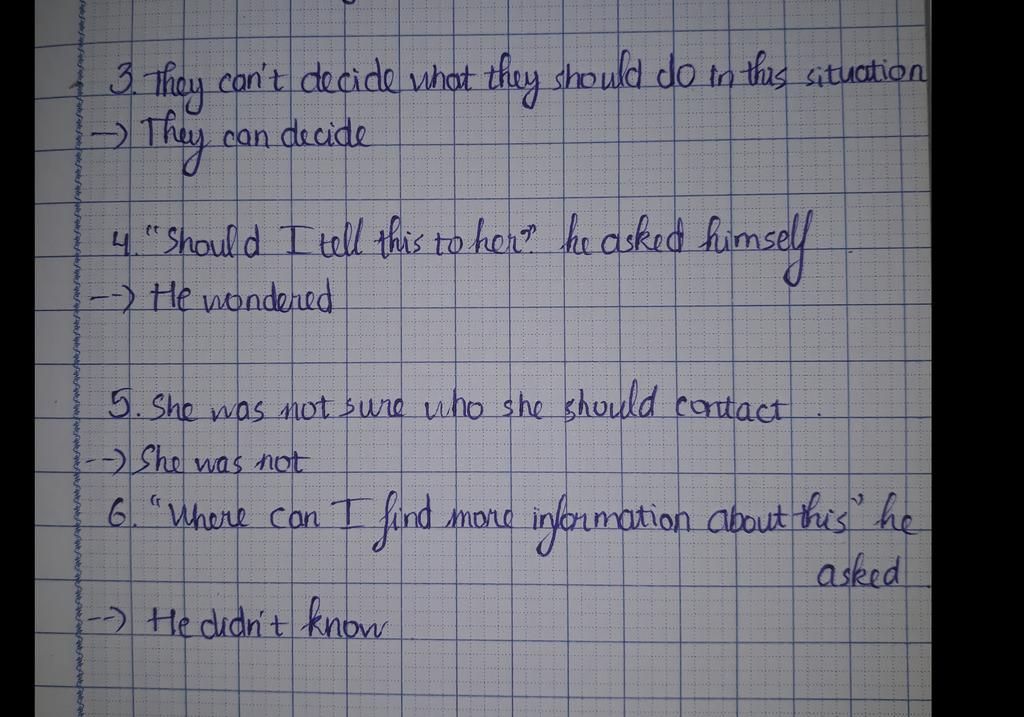 3. They can't decide what they should do in this situation
--> They can decide
4. "Should I tell this to her?" he asked himself.
--> He wondered
5. She was not sure who she should contact.
--> She was not
6. "Where can I find more information about this" he
asked.
--> He didn't know